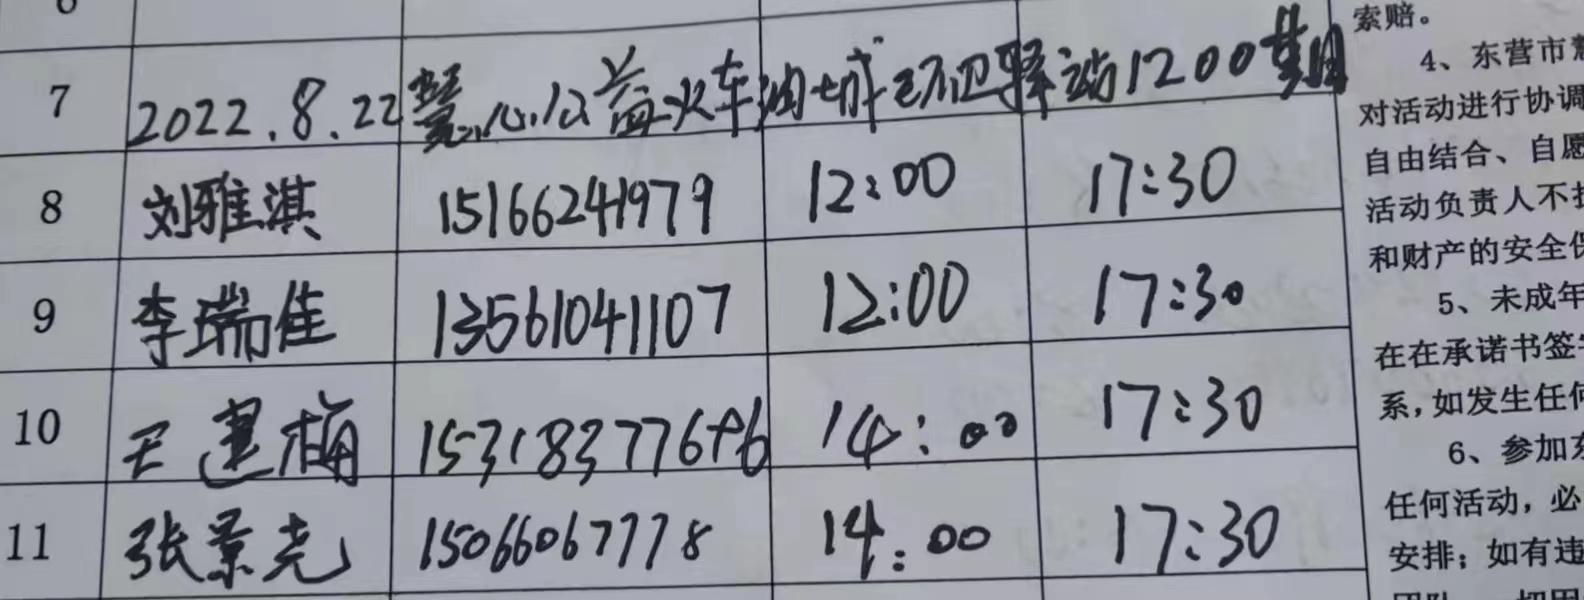 6
7 2022.8.22 慧心公益火车油城环卫驿站1200集
8 刘雅淇 15166241979 12:00 17:30
9 李瑞佳 13561041107 12:00 17:30
10 王建梅 14:00 17:30
11 张景尧 15066067778 14:00 17:30
索赔。
4、东营市慧
对活动进行协调
自由结合、自愿
活动负责人不
和财产的安全保
5、未成年
在在承诺书签字
系,如发生任何
6、参加东
任何活动,必
安排;如有违